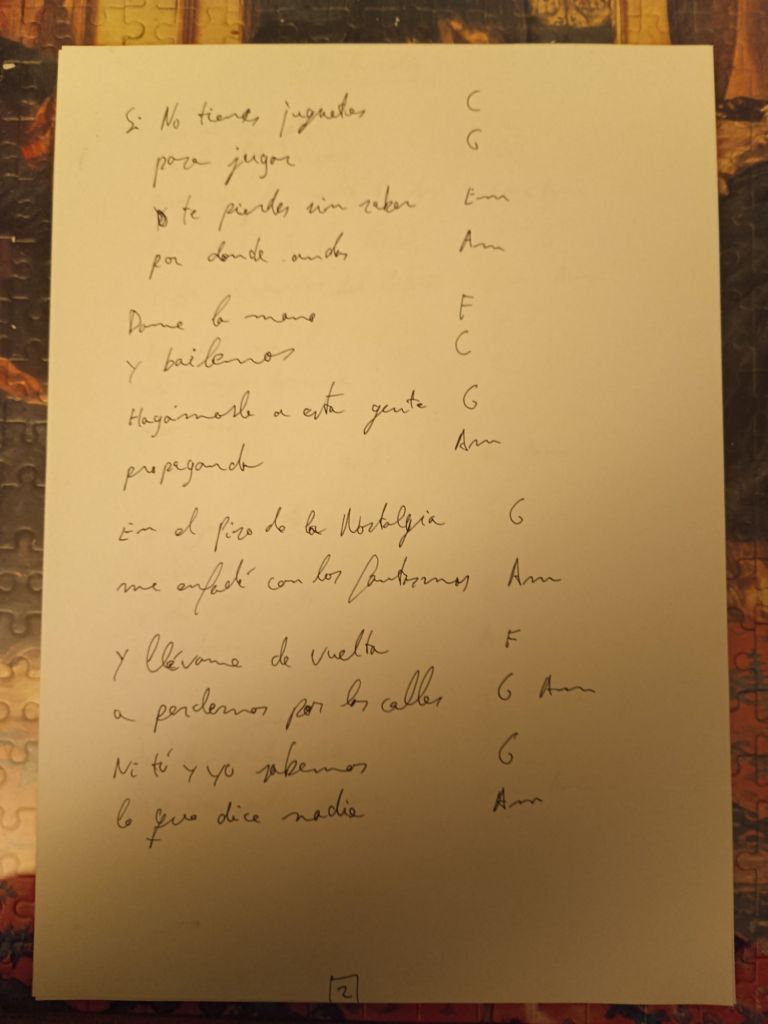 Si No tienes juguetes C
para jugar G
te pierdes sin saber Em
por donde andas Am
Dame la mano F
Y bailemos C
Hagámosle a esta gente G
propaganda Am
En el piso de la Nostalgia G
me enfadé con los fantasmas Am
Y llévame de vuelta F
a perdernos por las calles G Am
Ni tú y yo sabemos G
lo que dice nadie Am
2